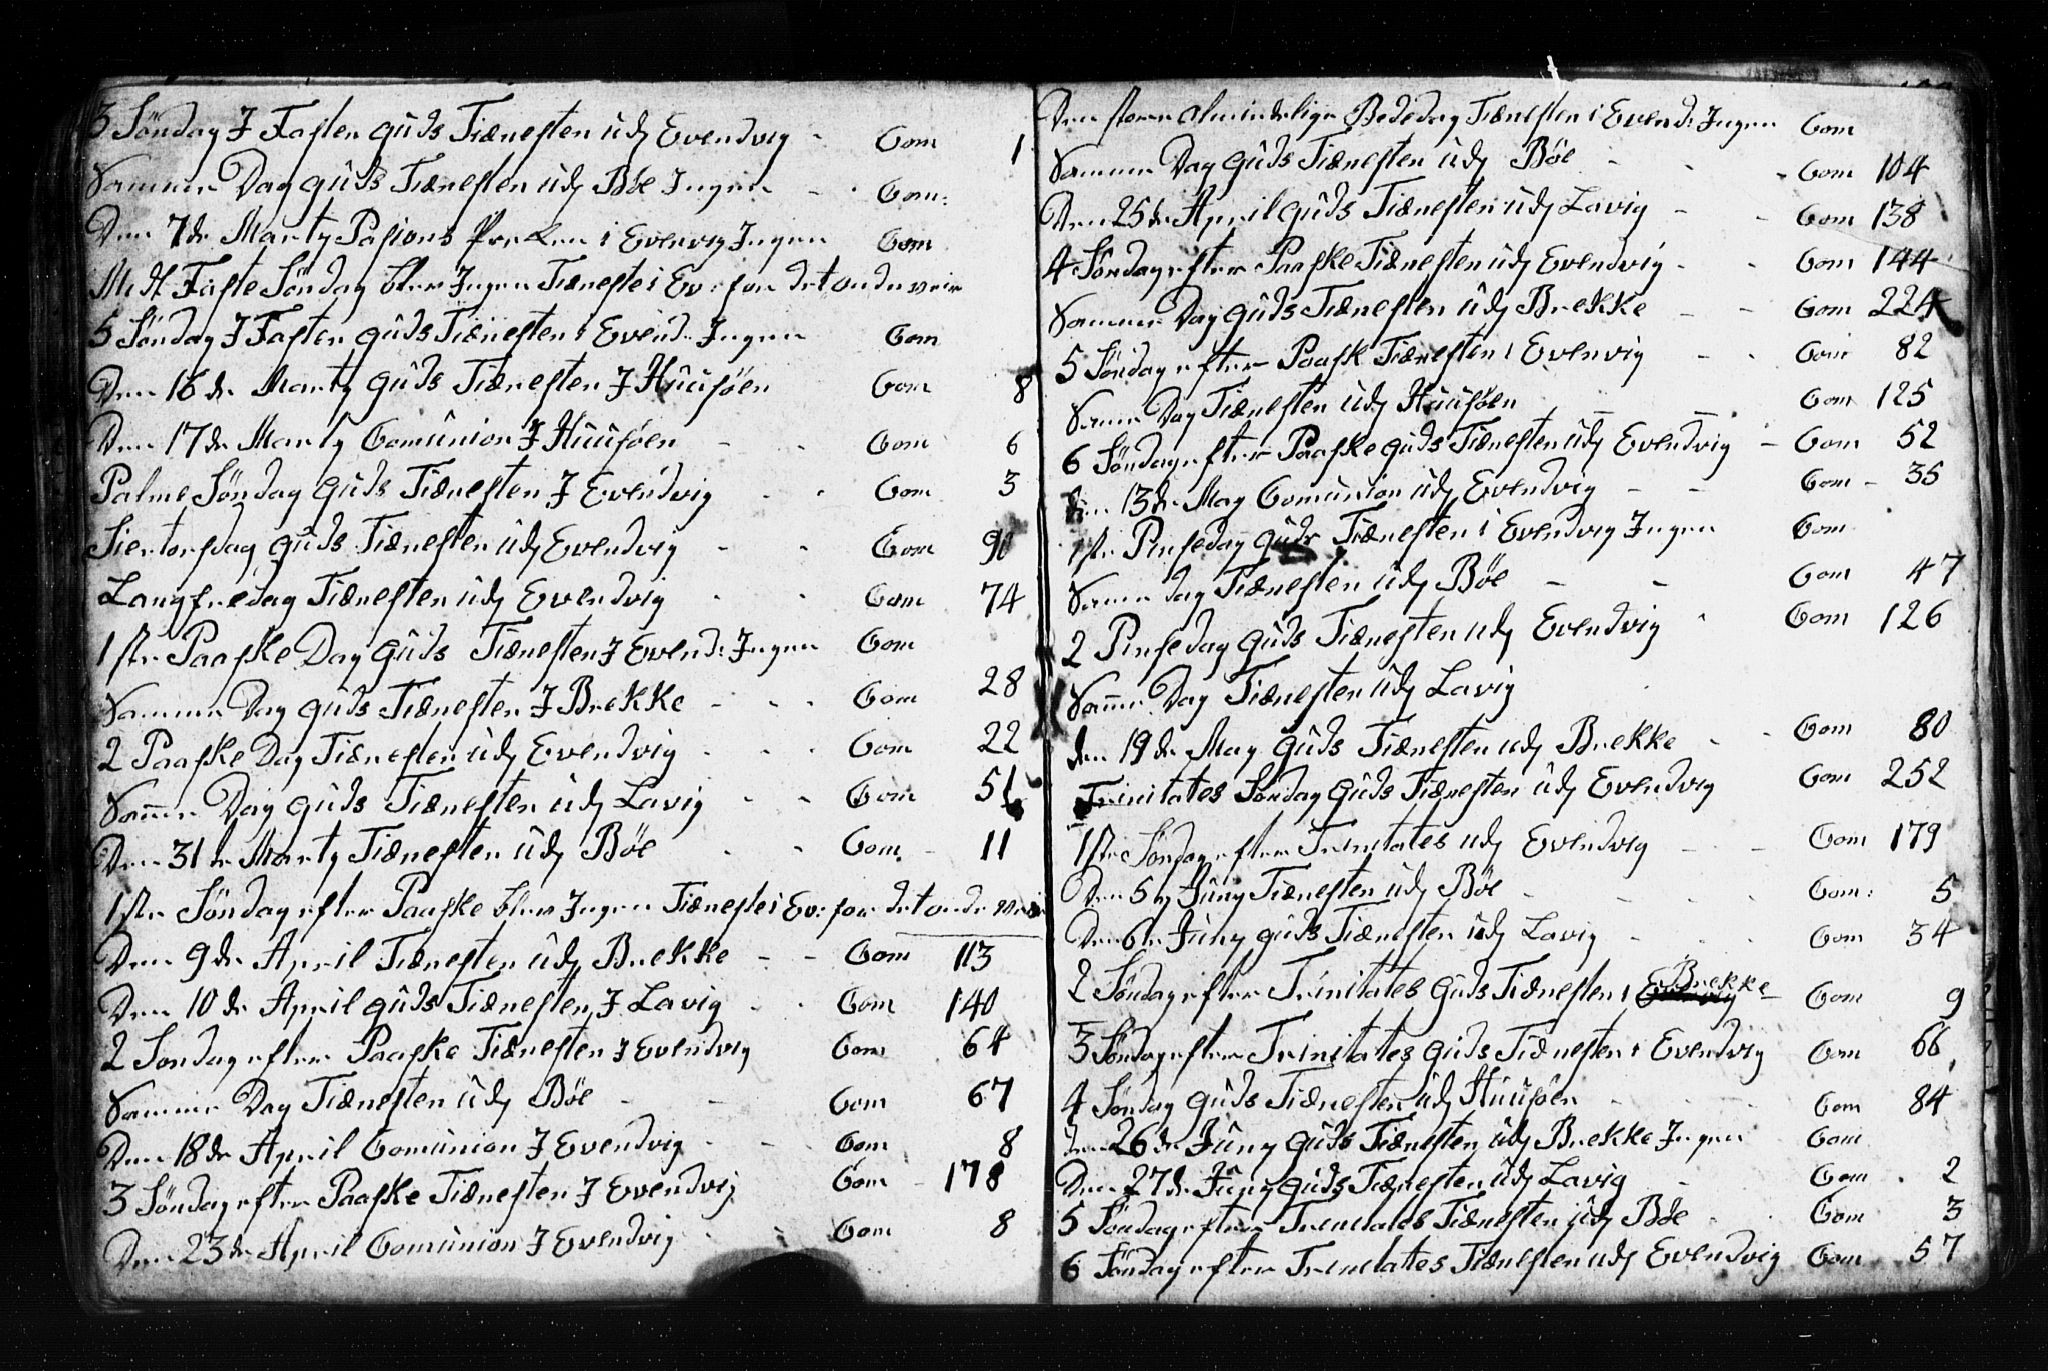 3 Söndag J Fasten Guds Tiænesten udj Evendvig - Com 1
Samme Dag Guds Tiænesten udj Böe Jngen - Com:
Den 7de Marty Pasions Preken i Evenvig Jngen Com
Midt Faste Söndag blev Jngen Tieneste i Ev: for det onde veir
5 Söndag J Fasten Guds Tiænesten i Evend: Jngen Com
Den 16de Marty Guds Tiænesten J Huusöen Com 8
Den 17de Marty Comunion J Huusöen - - Com 6
Palme Söndag Guds Tiænesten J Evendvig - - Com 3
Siertorsdag Guds Tiænesten udj Evendvig - - Com 90
Langfredag Tiænesten udj Evendvig - - Com 74
1ste Paaske Dag Guds Tiænesten J Evend: Jngen Com
Samme Dag Guds Tiænesten J Brekke - - - Com 28
2 Paaske Dag Tiænesten udj Evendvig - - - Com 22
Samme Dag Guds Tiænesten udj Lavig - - Com 51
Den 31te Marty Tiænesten udj Böe - - Com - 11
1ste Söndag efter Paaske blev Jngen Tieneste i Ev: for det onde veir
Den 9de April Tiænesten udj Brekke - - Com 113
Den 10de April Guds Tiænesten J Lavig - - Com 140
2 Söndag efter Paaske Tiænesten J Evendvig Com 64
Samme Dag Tiænesten udj Böe - - Com 67
Den 18de April Comunion J Evendvig - - Com 8
3 Söndag efter Paaske Tiænesten J Evendvig Com - 178
Den 23de April Comunion J Evendvig - Com 8
Den store almindelige Bededag Tiænesten i Evend: Jngen Com
Samme Dag Guds Tiænesten udj Böe - - - Com 104
Den 25de April Guds Tiænesten udj Lavig - - Com 138
4 Söndag efter Paaske Tiænesten udj Evendvig - - Com 144
Samme Dag Guds Tiænesten udj Brekke - - Com 224
5 Söndag efter Paask Tiænesten i Evenvig - - Com 82
Samme Dag Tiænesten udj Huusöen Com 125
6 Söndag efter Paaske Guds Tiænesten udj Evendvig - Com 52
den 13de May Comunion udj Evendvig - - Com - 35
1ste Pinsedag Guds Tiænesten i Evendvig Jngen Com
Samme dag Tiænesten udj Böe - - Com 47
2 Pinsedag Guds Tiænesten udj Evendvig - Com 126
Samme Dag Tiænesten udj Lavig
den 19de May Guds Tiænesten udj Brekke - - Com 80
Trinitates Söndag Guds Tiænesten udj Evendvig Com 252
1ste Söndag efter Trinitates udj Evendvig - - - Com 179
Den 5 Juny Tiænesten udj Böe - - - Com: 5
Den 6te Juny Guds Tiænesten udj Lavig - - - Com 34
2 Söndag efter Trinitates Guds Tiænesten i Evenvig Brekke Com 9
3 Söndag efter Trinitates Guds Tiænesten i Evendvig Com 66
4 Söndag Guds Tiænesten udj Huusöen - - - Com 84
den 26de Juny Guds Tiænesten udj Brekke Jngen Com
Den 27de Juny Guds Tiænesten udj Lavig - Com - 2
5 Söndag efter Trinitates Tiænesten udj Böe - Com 3
6 Söndag efter Trinitates Tiænesten udj Evendvig Com 57